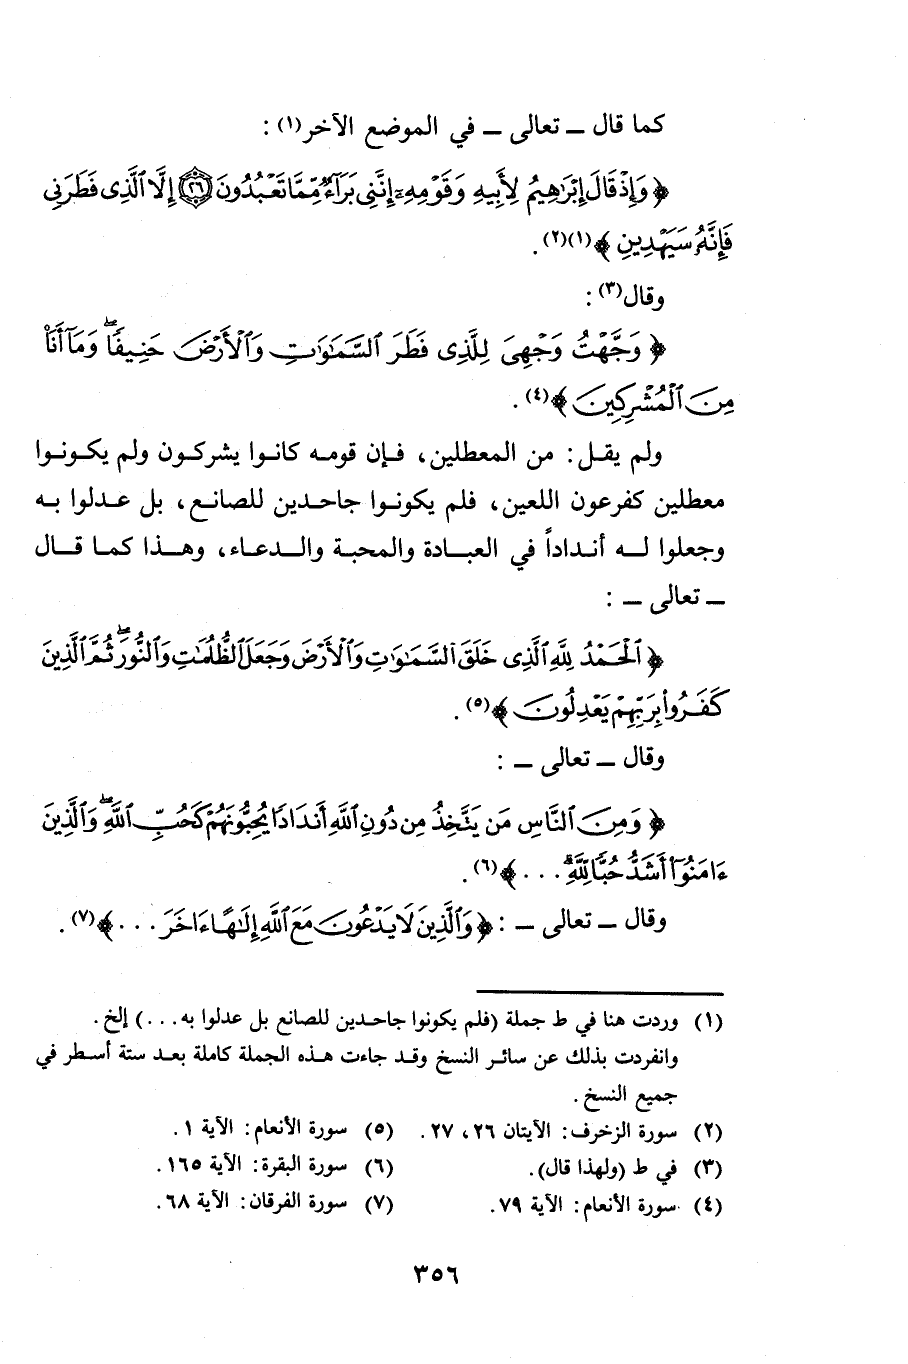 كما قال ــ تعالى ــ في الموضع الآخر(١) :
﴿ وَإِذْ قَالَ إِبْرَٰهِيمُ لِأَبِيهِ وَقَوْمِهِۦٓ إِنَّنِى بَرَآءٌ مِّمَّا تَعْبُدُونَ ۝٢٦ إِلَّا ٱلَّذِى فَطَرَنِى
فَإِنَّهُۥ سَيَهْدِينِ ﴾(١)(٢) .
وقال(٣) :
﴿ وَجَّهْتُ وَجْهِىَ لِلَّذِى فَطَرَ ٱلسَّمَٰوَٰتِ وَٱلْأَرْضَ حَنِيفًا ۖ وَمَآ أَنَا۠
مِنَ ٱلْمُشْرِكِينَ ﴾(٤) .
ولم يقـل : من المعطلين، فـإن قومـه كانـوا يشركـون ولم يكـونـوا
معطلين كفرعون اللعين، فلم يكونـوا جاحـدين للصانـع، بل عـدلوا بـه
وجعلوا لـه أنـداداً في العبـادة والمحبة والـدعـاء، وهـذا كمـا قـال
ــ تعالى ــ :
﴿ ٱلْحَمْدُ لِلَّهِ ٱلَّذِى خَلَقَ ٱلسَّمَٰوَٰتِ وَٱلْأَرْضَ وَجَعَلَ ٱلظُّلُمَٰتِ وَٱلنُّورَ ۖ ثُمَّ ٱلَّذِينَ
كَفَرُوا۟ بِرَبِّهِمْ يَعْدِلُونَ ﴾(٥) .
وقال ــ تعالى ــ :
﴿ وَمِنَ ٱلنَّاسِ مَن يَتَّخِذُ مِن دُونِ ٱللَّهِ أَندَادًا يُحِبُّونَهُمْ كَحُبِّ ٱللَّهِ ۖ وَٱلَّذِينَ
ءَامَنُوٓا۟ أَشَدُّ حُبًّا لِّلَّهِ ۗ . . . ﴾(٦) .
وقال ــ تعالى ــ : ﴿ وَٱلَّذِينَ لَا يَدْعُونَ مَعَ ٱللَّهِ إِلَٰهًا ءَاخَرَ . . . ﴾(٧) .
(١) وردت هنا في ط جملة (فلم يكونوا جاحـدين للصانع بل عدلوا به . . .) إلخ .
وانفردت بذلك عن سائـر النسخ وقـد جاءت هـذه الجملة كاملة بعـد ستة أسطر في
جميع النسخ .
(٢) سورة الزخرف : الآيتان ٢٦ ، ٢٧ . (٥) سورة الأنعام : الآية ١ .
(٣) في ط (ولهذا قال). (٦) سورة البقرة : الآية ١٦٥ .
(٤) سورة الأنعام : الآية ٧٩ . (٧) سورة الفرقان : الآية ٦٨ .
٣٥٦